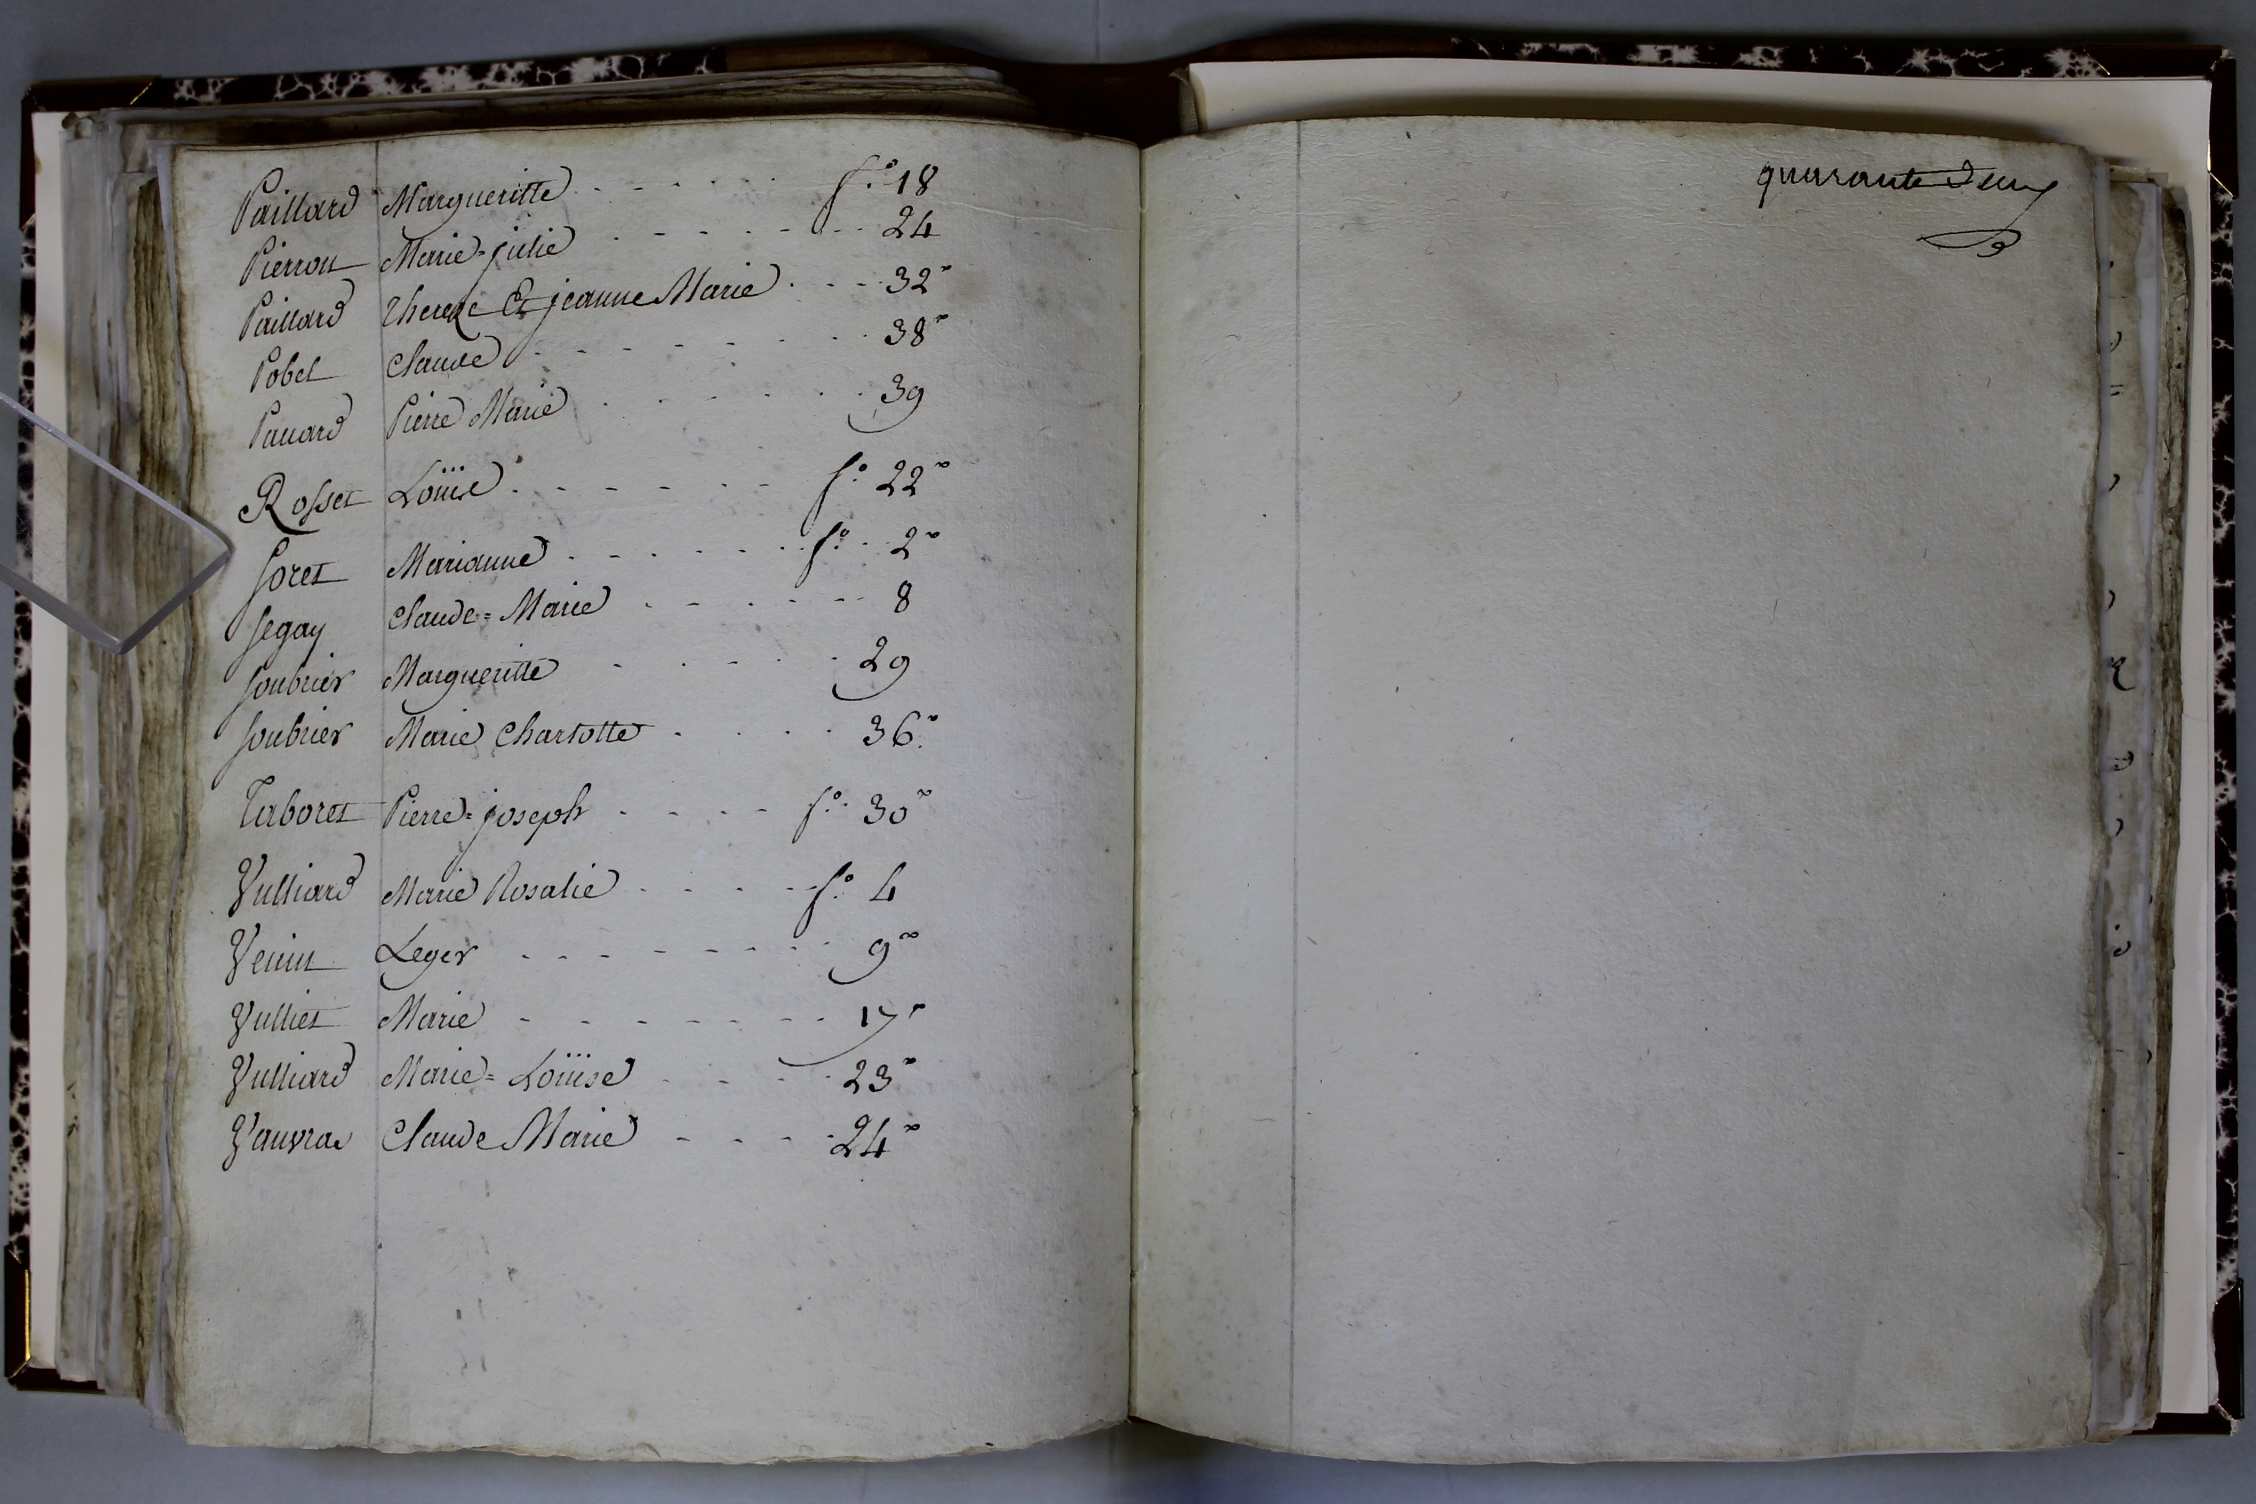 Paillard Margueritte - - - - - - f.° 18
Pierron Marie=julie - - - - - - - 24
Paillard Thereze Et jeanne Marie - - - 32°
Pobel Claude - - - - - - - - 38°
Pauard Pierre Marie - - - - - - 39
Rosset Loüise - - - - - - - f.° 22°
Soret Marianne - - - - - - - f.° 2°
Segay Claude=Marie - - - - - - 8
Soubrier Margueritte - - - - - 29
Soubrier Marie Charlotte - - - - 36°
Taboret Pierre=joseph - - - - f.° 30°
Vulliard Marie Rosalie - - - - f.° 4
Leger - - - - - - - - 9°
Vulliet Marie - - - - - - - - 17°
Vulliard Marie=Loüise - - - - 23°
Claude Marie - - - - 24°
quarante deux